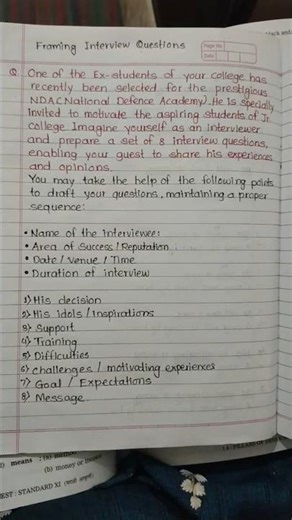 Framing Interview Questions
Page No.
Date
Q. One of the Ex-students of your college has
recently been selected for the prestigious
NDA(National Defence Academy). He is specially
invited to motivate the aspiring students of Jr.
college Imagine yourself as an interviewer
and prepare a set of 8 interview questions,
enabling your guest to share his experiences
and opinions.
You may take the help of the following points
to draft your questions, maintaining a proper
sequence:
• Name of the interviewer
• Area of Success / Reputation
• Date / Venue / Time
• Duration of interview
1) His decision
2) His idols / Inspirations
3) Support
4) Training
5) Difficulties
6) challenges / motivating experiences
7) Goal / Expectations
8) Message
means : (a)
(b) money or
EST : STANDARD XI